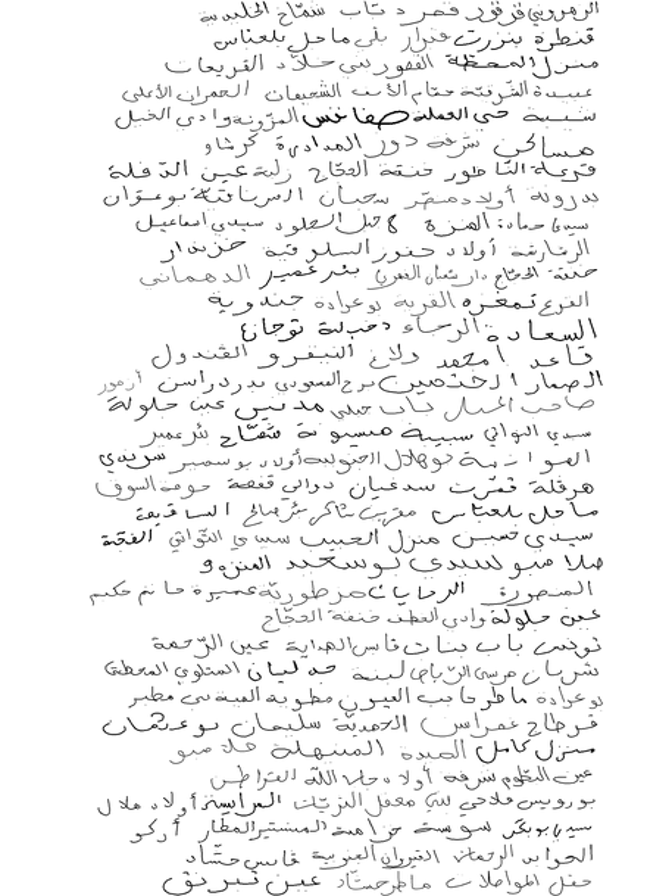 الزهروني قرقور قصر د باب شماخ الخليدية
قنطرة بنزرت بلي ماجل بلعباس
منزل المحطة القصور بني خلاد القريعات
عبيدة الشرقية حمام الأنف الشعيمات الحمران الأعلى
شبيبة حي العملة صفاقس المزونة وادي الخيل
مساكن شرفة دور المدادرة كرشاو
قرعة الناظور خنقة الحجاج زلبة عين الدفلة
بدرونة أولاد منصر سحبان السرياقية بوعزان
سيدي حمادة الهنزة جبل الجلود سيدي اسماعيل
الزغارنة أولاد السلوقية خزندار
خنقة الحجاج دار شعبان الفهري بئر عمير الدهماني
الفرع تمغزة القرية بوعرادة جندوية
السعادة الرخاء دخيلة توجان
قاعد امحمد ولاغ النيفرو الغندول
الصمار الدخنصين برج المسعودي بدر دراسن أرمور
صاحب الجبل باب جبلي مدنين عين جلولة
سيدي التواتي سبيبة ميسونة شماخ بئر عمير
العوازنية بوهلال الجنوبية أولاد بوسمير سوندي
هرقلة قمرت سدغيان دوالي قفصة حومة السوق
ماجل بلعباس شاكر بئر صالح الساقية
سيدي حسن منزل الحبيب سيدي التواتي الفجة
صلامبو لسيدي بوسعيد المنزه 9
المنصورة الرحايات مرطورية عميرة حاتم حكيم
عين جلولة وادي القطف خنقة الحجاج
تونس باب بنات قابس الهداية عين الرحمة
شربان مرسى الرياض لبنة جدليان السلوقي المحطة
بوعرادة ماطر حاجب العيون مطوية
قرطاج غمراسن الحمدية سليمان بوعثمان
منزل كامل الصيدة المنيهلة صلامبو
عين البطوم شرفة أولاد جاب الله القراطن
بورويس فلاحي بني معقل الزيتات العرايسية أولاد هلال
سيدي بوبكر سوسة حزامية المنستير المطار أركو
الجوابد الرحمان القيروان الجنوبية قابس حشاد
حفل المواصلات ماطر حشاد عين تبرنق